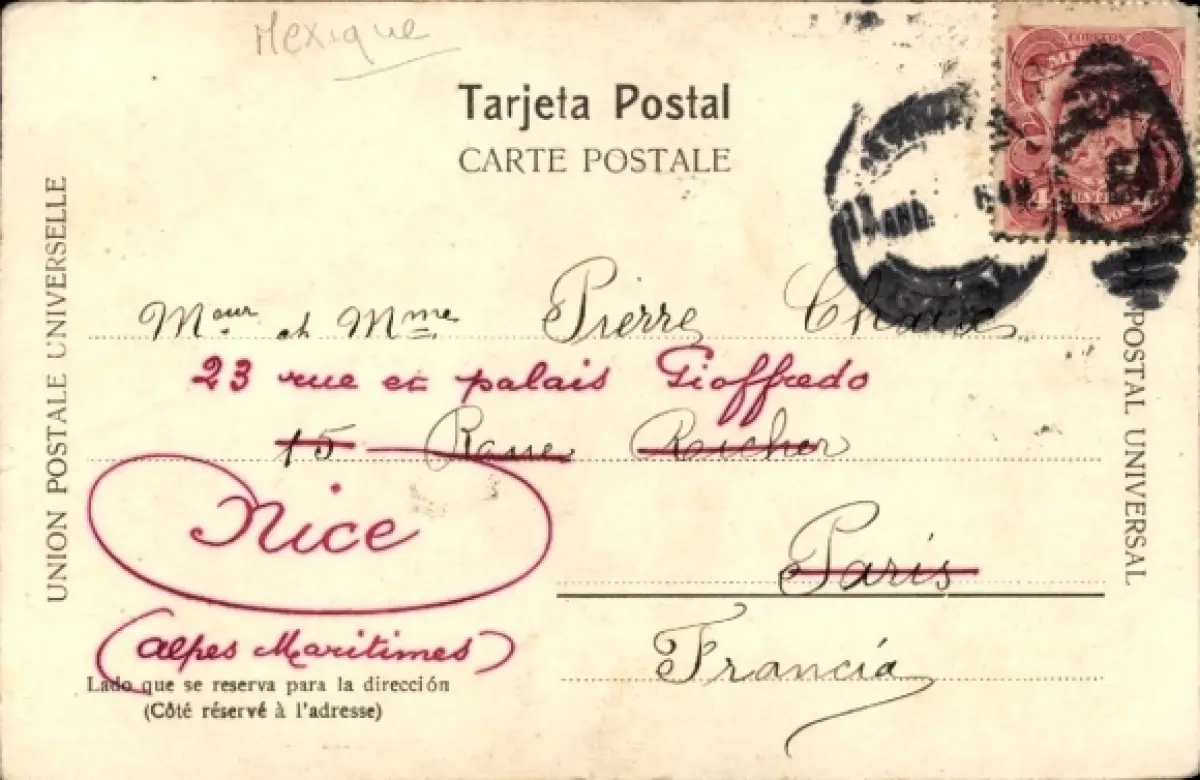 Mexique
Tarjeta Postal
CARTE POSTALE
UNION POSTALE UNIVERSELLE
POSTAL UNIVERSAL
CORREOS
13 AGO.
Mour et Mme Pierre Chaix
23 rue et palais Gioffredo
15 Rue Richer
Nice
Paris
(Alpes Maritimes)
Francia
Lado que se reserva para la dirección
(Côté réservé à l'adresse)